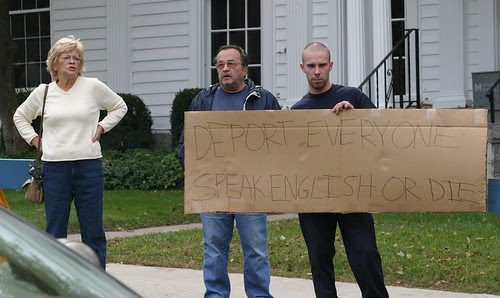 DEPORT EVERYONE
SPEAK ENGLISH OR DIE